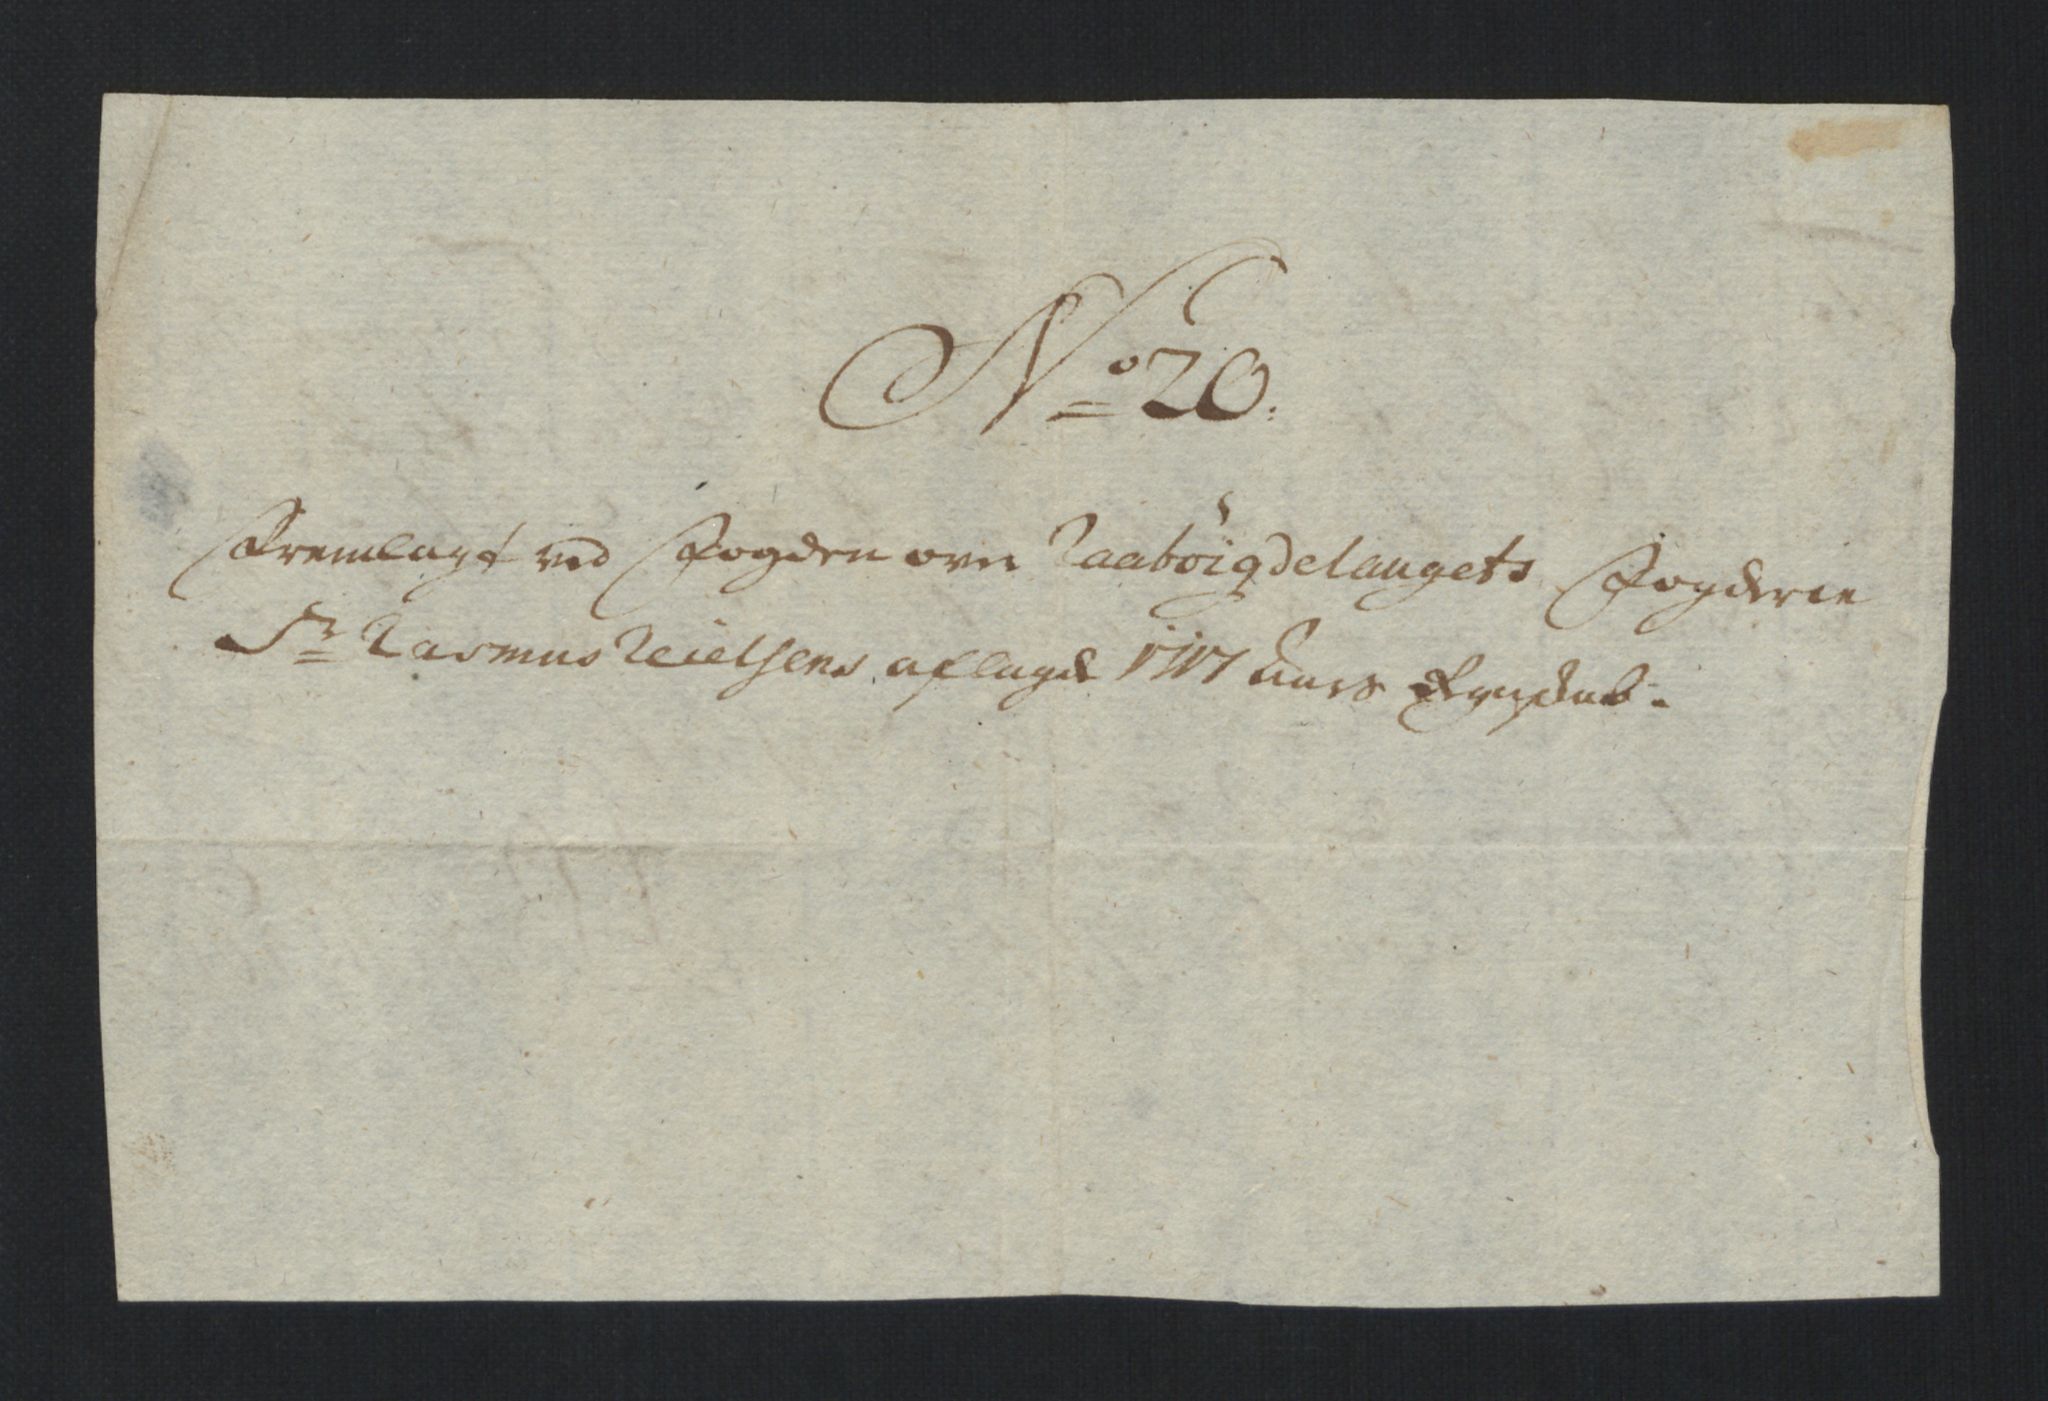 No 20.
Fremlagt ved Fogden over Raabøigdelaugets Fogderie
Sr Rasmus Nielsens aflagde 1717 Aars Regnskab.